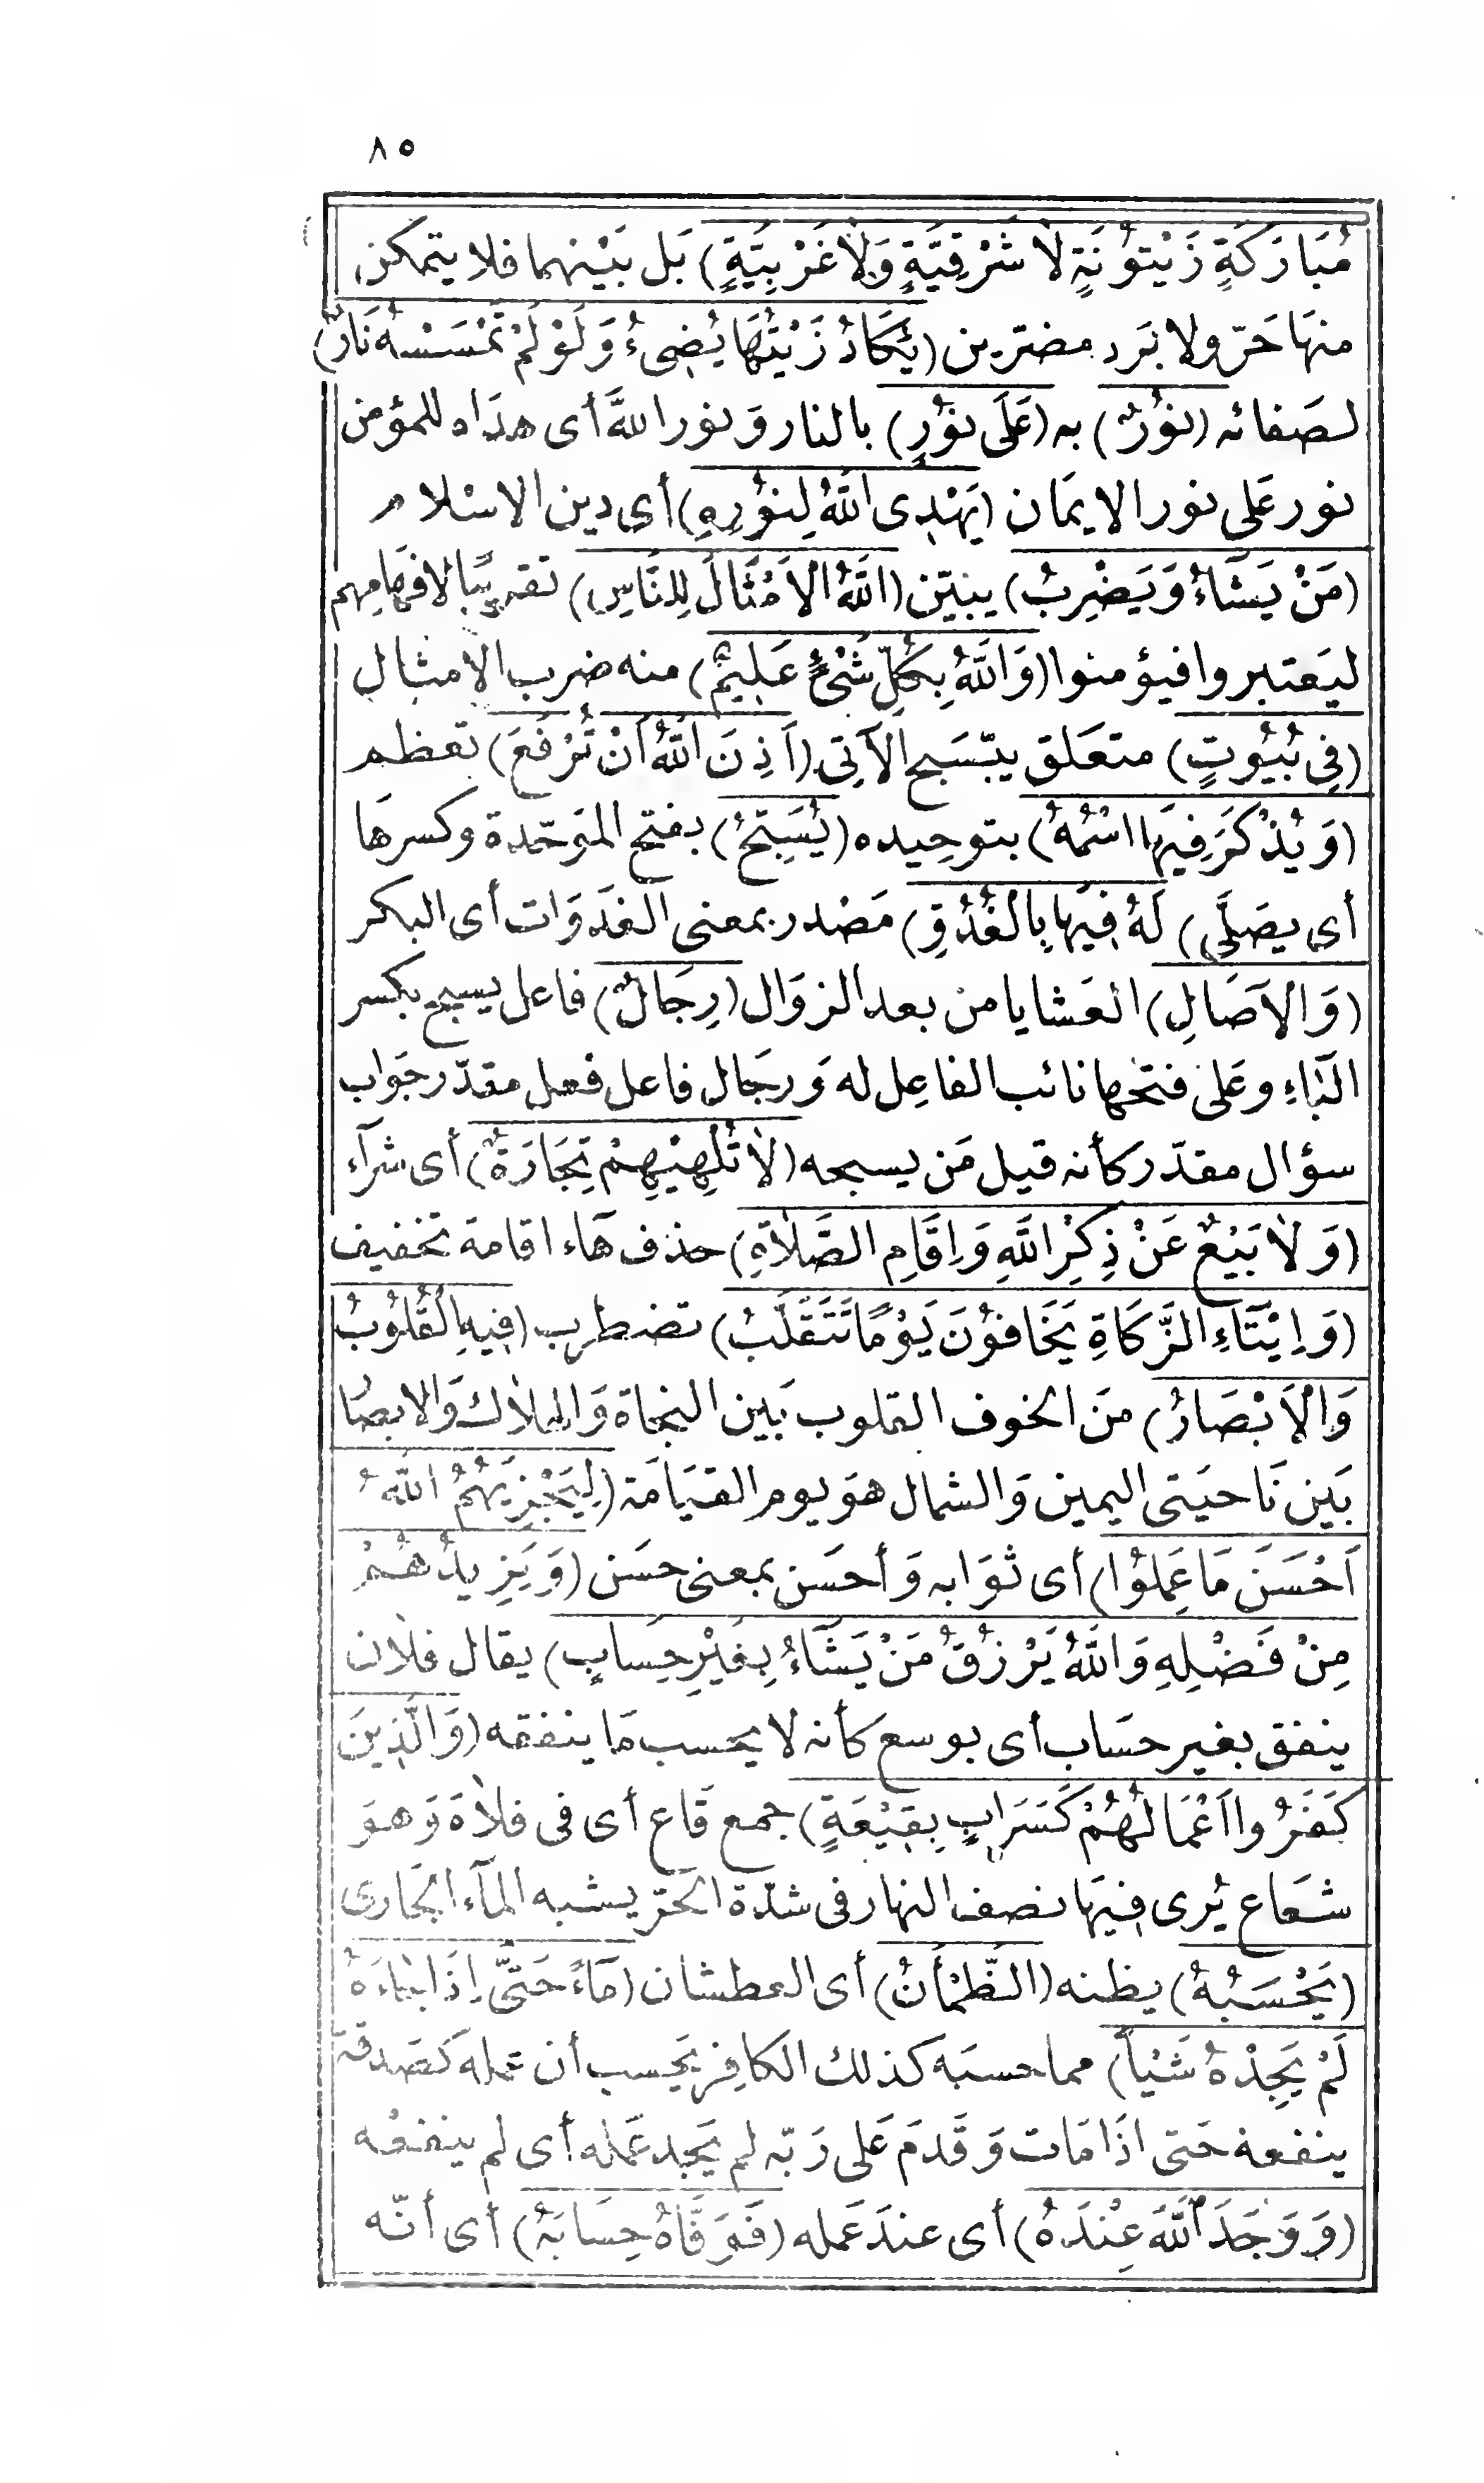 ٨٥
مُبَارَكَةٍ زَيْتُوْنَةٍ لَا شَرْقِيَّةٍ وَلَا غَرْبِيَّةٍ) بَل بَيْنهما فلا يتمكن
منهَا حَرّ ولا بَرد مضرّين (يَكَادُ زَيْتُهَا يُضِىءُ وَلَوْ لَمْ تَمْسَسْهُ نَارٌ)
لصَفائه (نُوْرٌ) به (عَلَى نُوْرٍ) بالنار وَنور اللهَّ أى هدَاه للمؤمن
نور عَلى نور الايمَان (يَهْدِى اللَّهُ لِنُوْرِهِ) أى دين الاسْلام
(مَنْ يَشَآءُ وَيَضْرِبُ) يبيّن (اللَّهُ الْاَمْثَالَ لِلنَّاسِ) تقريبًا لافهَامِهم
ليَعتبروا فيؤمنوا (وَاللَّهُ بِكُلِّ شَىْءٍ عَلِيْمٌ) منه ضرب الامثال
(فِى بُيُوتٍ) متعَلق بيّسَبح الآتِى (اَذِنَ اللَّهُ اَنْ تُرْفَعَ) تعظم
(وَيُذْكَرَ فِيْهَا اسْمُهُ) بتوحِيده (يُسَبِّحُ) بفتح الموَحّدة وكسرهَا
أى يصَلَّى) لَهُ فِيْهَا بِالْغُدُوِّ) مَصْدر بمعنى الغَدوَات أى البكر
(وَالْاَصَالِ) العَشايا منْ بعد الزوَال (رِجَالٌ) فاعل يسبح بكسر
البَاءِ وعَلى فتحها نائب الفاعِل له وَرجَال فاعل فعل مقدّر جوَاب
سؤال مقدّر كأنه قيل مَن يسبحه (لَا تُلْهِيْهِمْ تِجَارَةٌ) أى شرآء
(وَلَا بَيْعٌ عَنْ ذِكْرِ اللَّهِ وَاِقَامِ الصَّلَاةِ) حذف هَاء اقامة تخفيف
(وَاِيْتَآءِ الزَّكَاةِ يَخَافُوْنَ يَوْمًا تَتَقَلَّبُ) تضطرِب (فِيْهِ الْقُلُوْبُ
وَالْاَبْصَارُ) منَ الخوف القلوب بَين النجاة وَالهلاك وَالابصَا
بَين نَاحيَتى اليمين وَالشمال هوَ يوم القيَامَة (لِيَجْزِيَهُمُ اللَّهُ
اَحْسَنَ مَا عَمِلُوْا) أى ثوَابه وَأحسَن بمعنى حسَن (وَيَزِيدُهُمْ
مِنْ فَضْلِهِ وَاللَّهُ يَرْزُقُ مَنْ يَشَآءُ بِغَيْرِ حِسَابٍ) يقال فلان
ينفق بغير حسَاب أى بوسع كأنه لا يحسب مَا ينفقه (وَالَّذِينَ
كَفَرُوا اَعْمَالُهُمْ كَسَرَابٍ بِقِيْعَةٍ) جمع قَاع أى فى فلاة وَهوَ
شعَاع يُرى فِيهَا نصف النهار فى شدّة الحَرّ يشبه المآء الجَارى
(يَحْسَبُهُ) يظنه (الظَّمْأَنُ) أى العطشان (مَآءً حَتَّى اِذَا جَاءَهُ
لَمْ يَجِدْهُ شَيْأً) مما حسبَه كذلك الكافِر يَحسب أن عمله كصَدقة
ينفعه حَتى اذَا مَات وَقَدمَ عَلى رَبّه لم يَجد عَمله أى لم ينفعْه
(وَوَجَدَ اللَّهَ عِنْدَهُ) أى عندَ عَمله (فَوَفَّاهُ حِسَابَهُ) أى أنّه